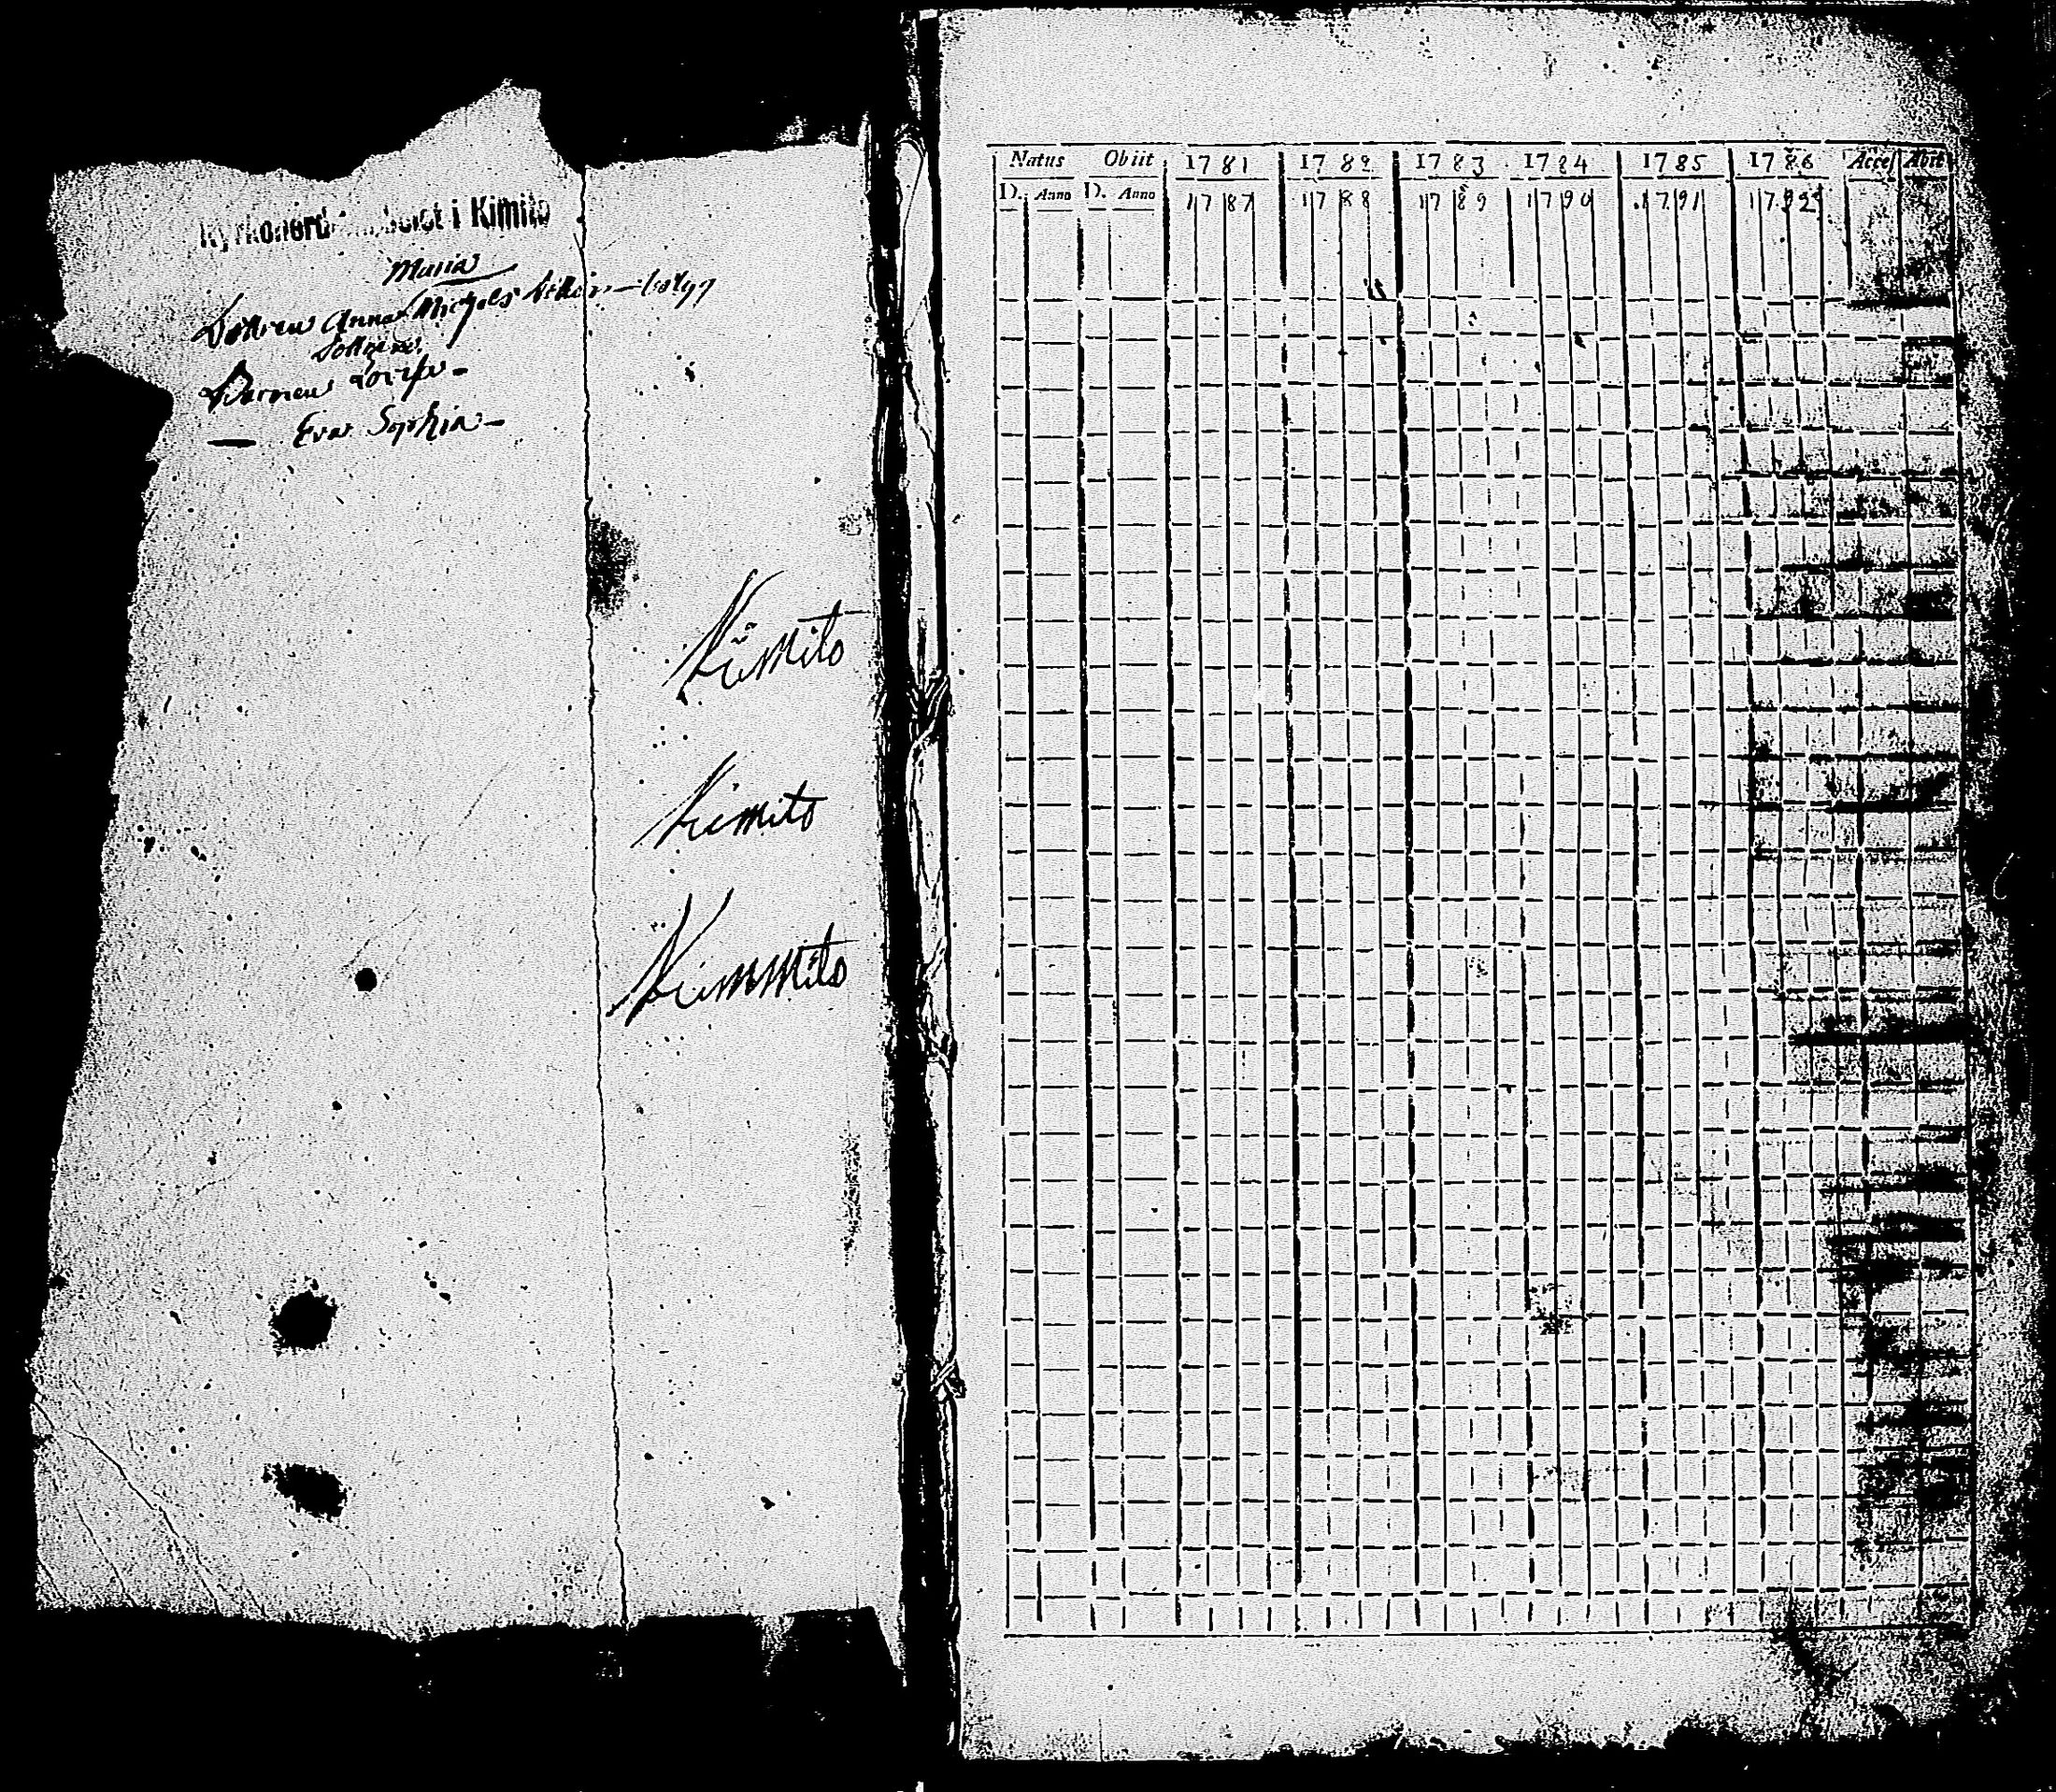 Kyrkoherdeämbetet i Kimito
Maria
Dottren Anna Michels
Dottren
Barnen Lovisa -
— Eva Sophia -
Kimito
Kimito
Kimmito
Natus Obiit 1781 1782 1783 1784 1785 1786 Access Abit
D. Anno D. Anno 1787 1788 1789 1790 1791 1792